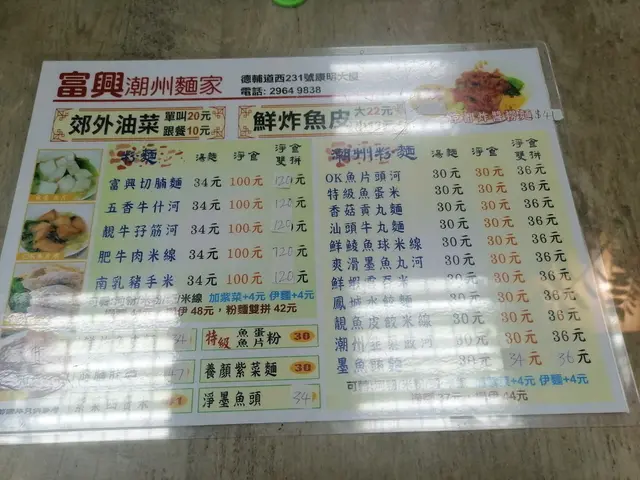 富興潮州麵家
德輔道西231號康明大廈
電話: 2964 9838
郊外油菜 單叫20元 跟餐10元
鮮炸魚皮 大22元
$41
粉麵 湯麵 淨食 淨食雙拼
富興切腩麵 34元 100元 120元
五香牛什河 34元 100元 120元
靚牛孖筋河 34元 100元 120元
肥牛肉米線 34元 100元 120元
南乳豬手米 34元 100元 120元
加紫菜+4元 伊麵+4元
48元, 粉麵雙拼 42元
特級 魚蛋 魚片 粉 30
養顏紫菜麵 30
淨墨魚頭 34
潮州粉麵 湯麵 淨食 淨食雙拼
OK魚片頭河 30元 30元 36元
特級魚蛋米 30元 30元 36元
香菇貢丸麵 30元 30元 36元
汕頭牛丸麵 30元 30元 36元
鮮鯪魚球米線 30元 30元 36元
爽滑墨魚丸河 30元 30元 36元
鮮蝦雲吞米 30元 30元 36元
鳳城水餃麵 30元 30元 36元
靚魚皮餃米線 30元 30元 36元
30元 30元 36元
30元 34元 36元
+4元 伊麵+4元
37元 44元